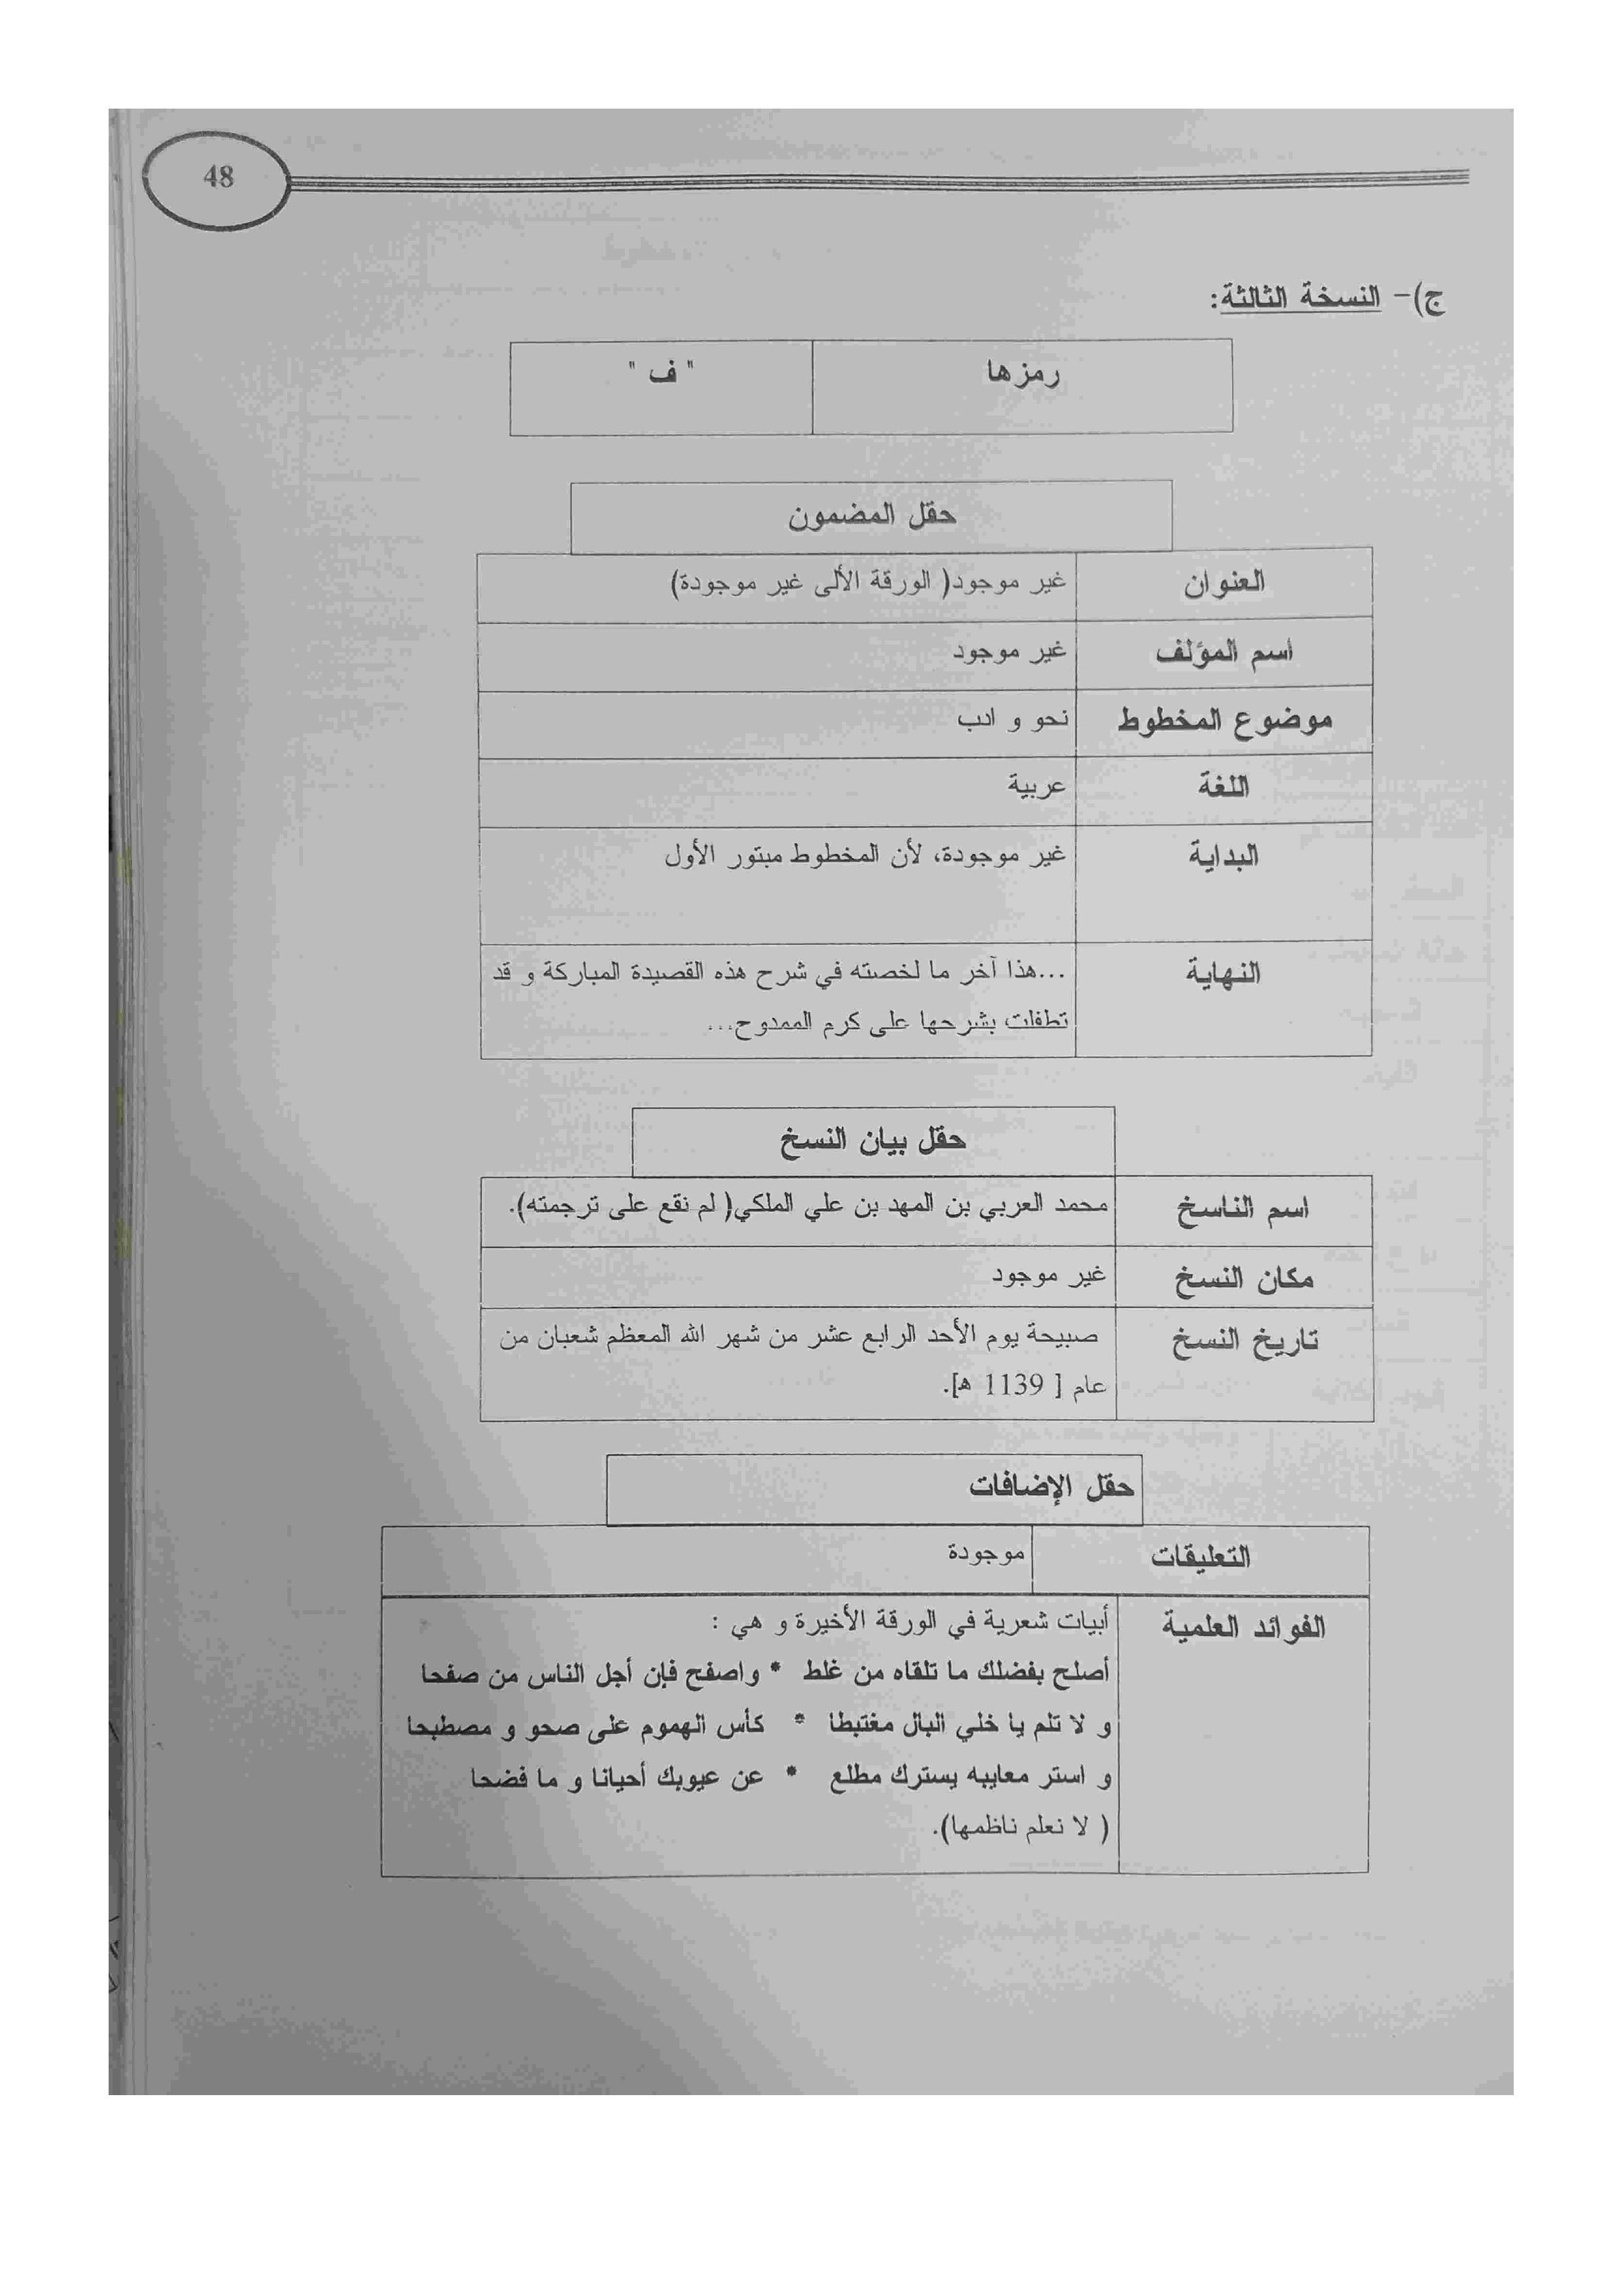 48
ج)- النسخة الثالثة:
رمزها " ف "
حقل المضمون
العنوان غير موجود( الورقة الألى غير موجودة)
اسم المؤلف غير موجود
موضوع المخطوط نحو و ادب
اللغة عربية
البداية غير موجودة، لأن المخطوط مبتور الأول
النهاية ...هذا آخر ما لخصته في شرح هذه القصيدة المباركة و قد
تطفلت بشرحها على كرم الممدوح...
حقل بيان النسخ
اسم الناسخ محمد العربي بن المهد بن علي الملكي( لم نقع على ترجمته).
مكان النسخ غير موجود
تاريخ النسخ صبيحة يوم الأحد الرابع عشر من شهر الله المعظم شعبان من
عام [ 1139 ه].
حقل الإضافات
التعليقات موجودة
الفوائد العلمية أبيات شعرية في الورقة الأخيرة و هي :
أصلح بفضلك ما تلقاه من غلط * واصفح فإن أجل الناس من صفحا
و لا تلم يا خلي البال مغتبطا * كأس الهموم على صحو و مصطبحا
و استر معايبه يسترك مطلع * عن عيوبك أحيانا و ما فضحا
( لا نعلم ناظمها).